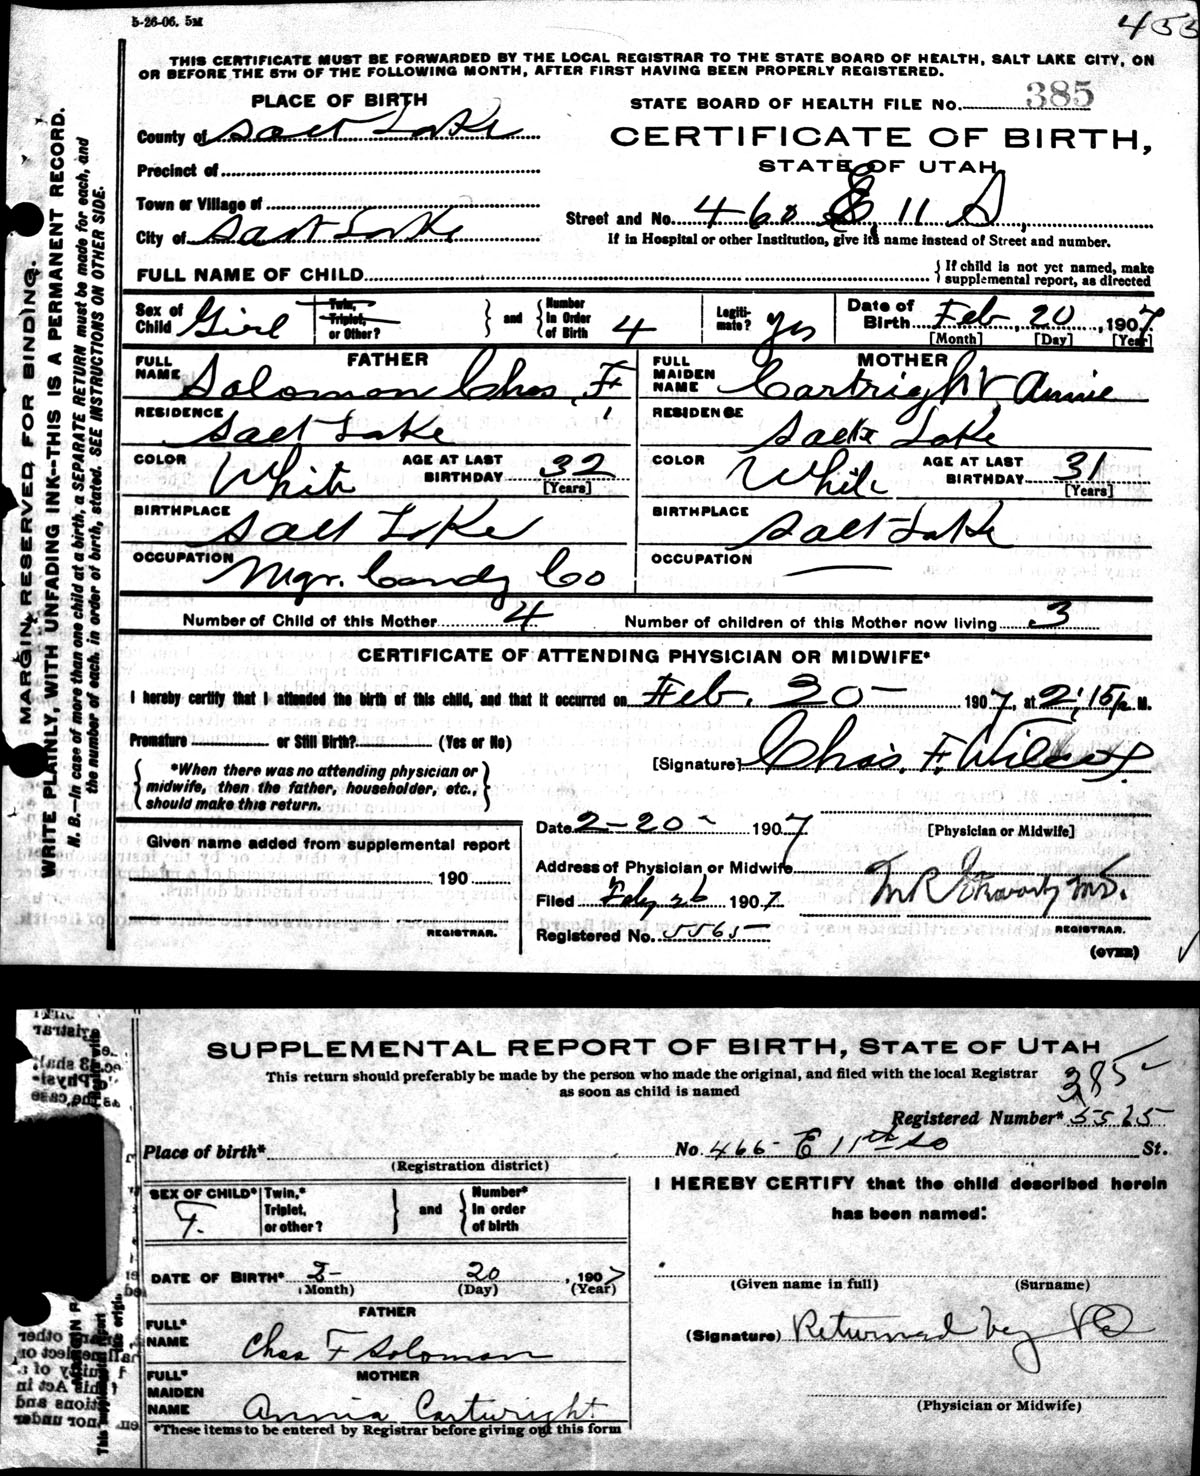 5-26-06. 5M
453
THIS CERTIFICATE MUST BE FORWARDED BY THE LOCAL REGISTRAR TO THE STATE BOARD OF HEALTH, SALT LAKE CITY, ON
OR BEFORE THE 5TH OF THE FOLLOWING MONTH, AFTER FIRST HAVING BEEN PROPERLY REGISTERED.
MARGIN RESERVED FOR BINDING.
WRITE PLAINLY, WITH UNFADING INK--THIS IS A PERMANENT RECORD.
N. B.—In case of more than one child at a birth, a SEPARATE RETURN must be made for each, and
the number of each, in order of birth, stated. SEE INSTRUCTIONS ON OTHER SIDE.
PLACE OF BIRTH
STATE BOARD OF HEALTH FILE No. 385
County of Salt Lake
CERTIFICATE OF BIRTH,
STATE OF UTAH
Precinct of
Town or Village of
Street and No. 460 E, 11 S,
City of Salt Lake
If in Hospital or other Institution, give its name instead of Street and number.
FULL NAME OF CHILD
If child is not yet named, make
supplemental report, as directed
Sex of Child Girl
Twin, Triplet, or Other?
and
Number In Order of Birth 4
Legiti-mate? Yes
Date of Birth Feb, 20, 1907
[Month] [Day] [Year]
FATHER
MOTHER
FULL NAME Solomon Chas, F,
FULL MAIDEN NAME Cartright Annie
RESIDENCE Salt Lake
RESIDENCE Salt Lake
COLOR White AGE AT LAST BIRTHDAY 32 [Years]
COLOR White AGE AT LAST BIRTHDAY 31 [Years]
BIRTHPLACE Salt Lake
BIRTHPLACE Salt Lake
OCCUPATION Mgr. Candy Co
OCCUPATION —
Number of Child of this Mother 4 Number of children of this Mother now living 3
CERTIFICATE OF ATTENDING PHYSICIAN OR MIDWIFE*
I hereby certify that I attended the birth of this child, and that it occurred on Feb. 20— 1907, at 2;15 P. M.
Premature or Still Birth? (Yes or No)
[Signature] Chas. F. Wilcox
*When there was no attending physician or
midwife, then the father, householder, etc.,
should make this return.
Given name added from supplemental report
190
REGISTRAR.
Date 2-20- 1907
[Physician or Midwife]
Address of Physician or Midwife
Filed Feby 26 1907
M.D.
Registered No. 5565
REGISTRAR.
(OVER)
SUPPLEMENTAL REPORT OF BIRTH, STATE OF UTAH
This return should preferably be made by the person who made the original, and filed with the local Registrar
as soon as child is named
385
Registered Number* 5565
Place of birth*
(Registration district)
No. 466 E 11th So St.
SEX OF CHILD* F.
Twin,* Triplet, or other?
and
Number* In order of birth
I HEREBY CERTIFY that the child described herein
has been named:
DATE OF BIRTH* 2- 20, 1907
(Month) (Day) (Year)
(Given name in full) (Surname)
FATHER
FULL* NAME Chas F Solomon
(Signature) Returned by
MOTHER
FULL* MAIDEN NAME Annia Cartwright
(Physician or Midwife)
*These items to be entered by Registrar before giving out this form